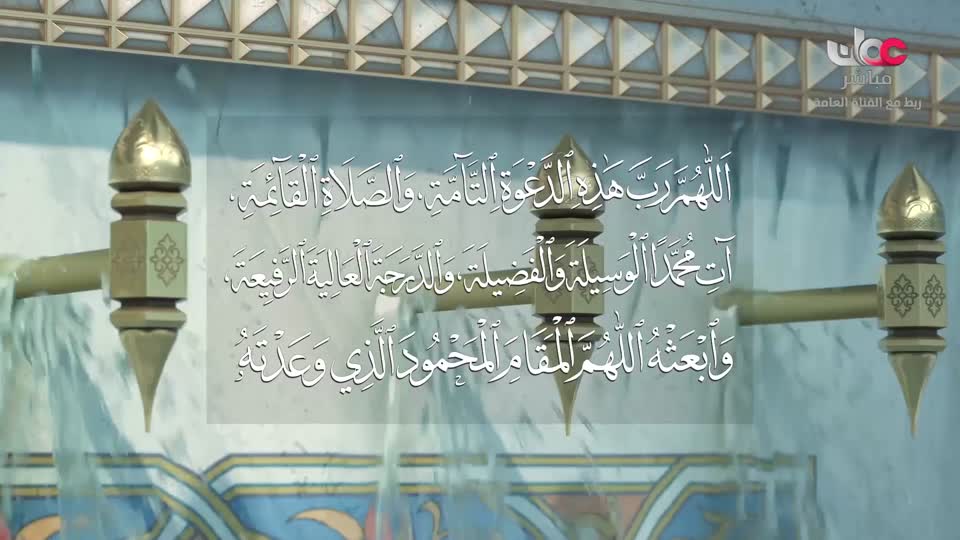 عمان
مباشر
ربط مع القناة العامة
اَللّٰهُمَّ رَبَّ هَٰذِهِ ٱلدَّعْوَةِ ٱلتَّآمَّةِ، وَٱلصَّلَاةِ ٱلْقَآئِمَةِ،
آتِ مُحَمَّدًا ٱلْوَسِيلَةَ وَٱلْفَضِيلَةَ، وَٱلدَّرَجَةَ ٱلْعَالِيَةَ ٱلرَّفِيعَةَ،
وَٱبْعَثْهُ ٱللّٰهُمَّ ٱلْمَقَامَ ٱلْمَحْمُودَ ٱلَّذِي وَعَدْتَهُ